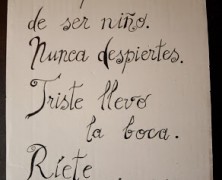 de ser niño.
Nunca despiertes.
Triste llevo
la boca.
Ríete